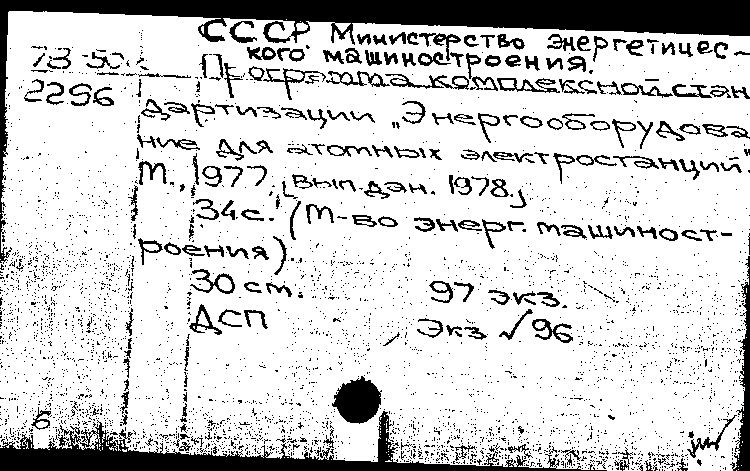 СССР Министерство энергетичес-
кого машиностроения.
Программа комплексной стан
2296
дартизации „Энергооборудова
ние для атомных электростанций."
М., 1977. [вып. дан. 1978.]
34с. (М-во энерг. машиност-
роения)
30 см. 97 экз.
ДСП Экз √96
6